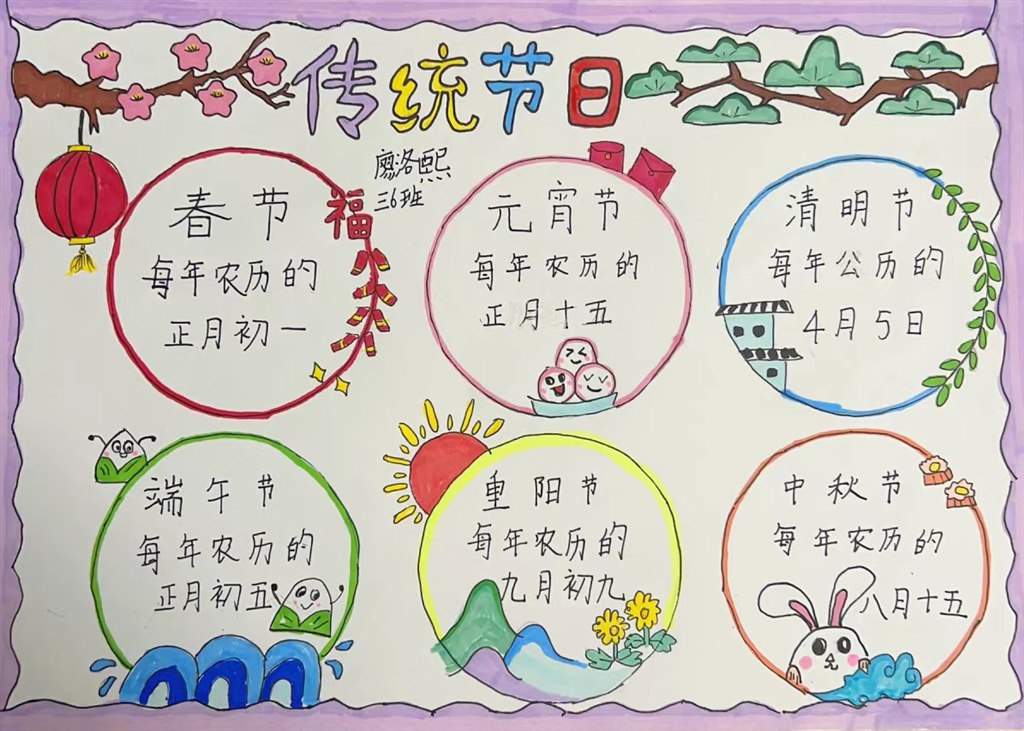 传统节日
廖洛熙
三6班
春节
每年农历的
正月初一
福
元宵节
每年农历的
正月十五
清明节
每年公历的
4月5日
端午节
每年农历的
正月初五
重阳节
每年农历的
九月初九
中秋节
每年农历的
八月十五